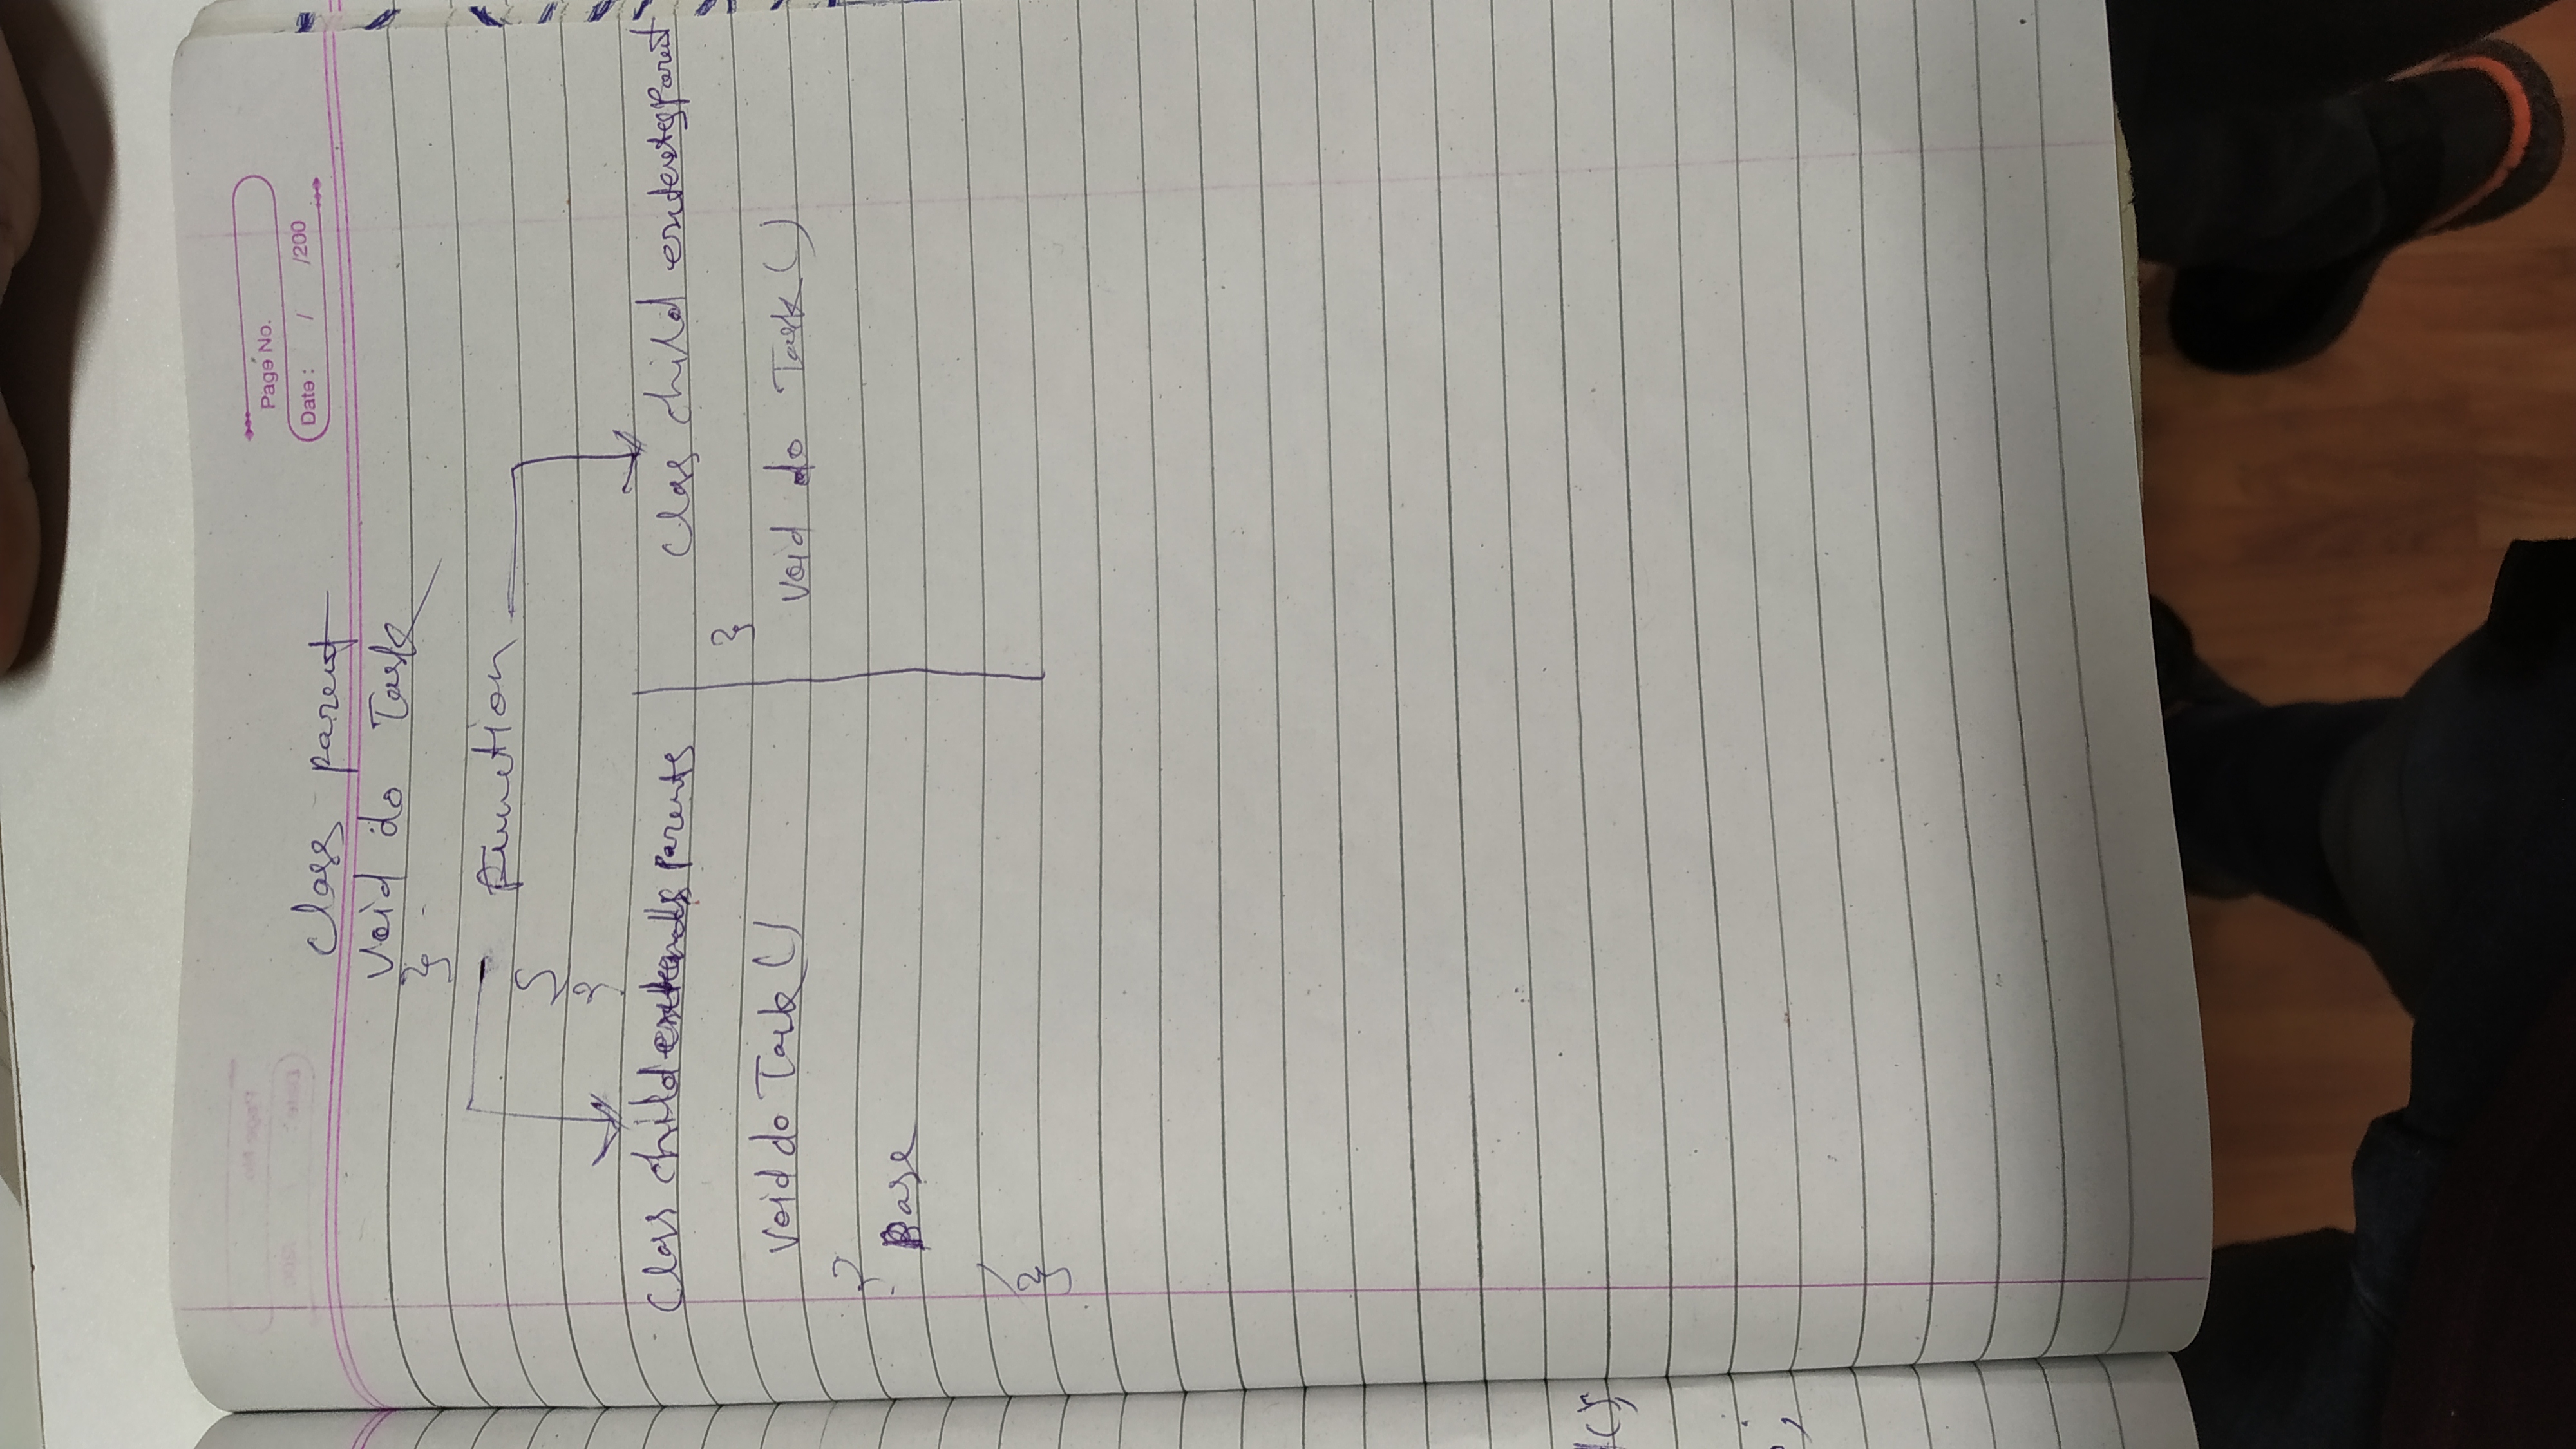 Page No.
Date : / /200
Class parent
Void do Task
}
function
{
}
Class child extends parents
Void do Task ()
Base
}
Class child extends parent
}
Void do Task ()